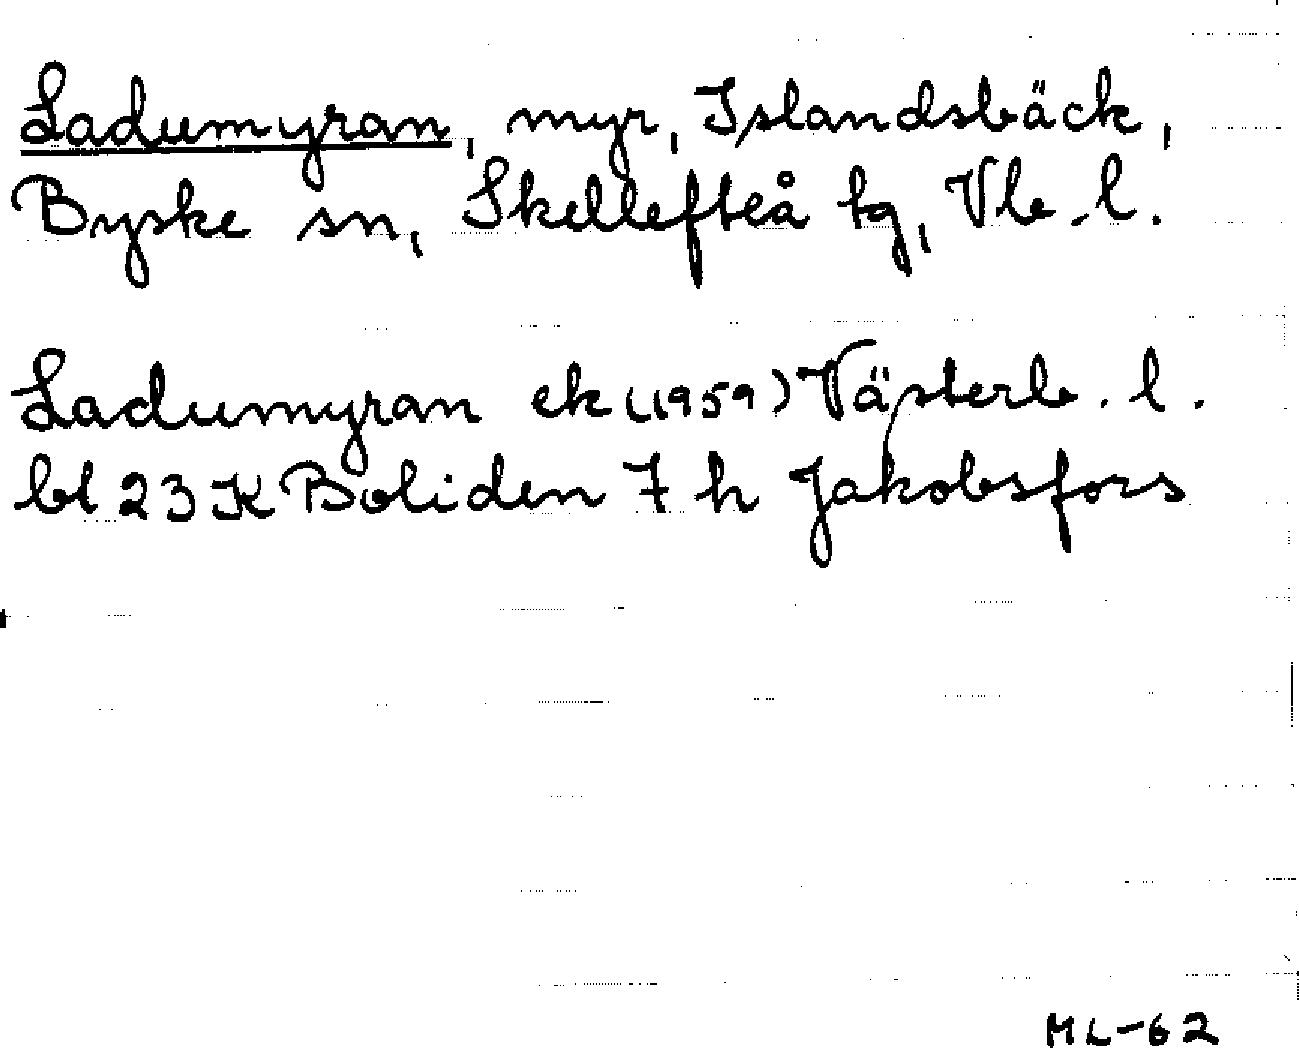 Ladumyran, myr, Islandsbäck,
Byske sn, Skellefteå tg, Vb. l.
Ladumyran ek (1959) Västerb. l.
bl 23 K Boliden 7 h Jakobsfors
ML-62